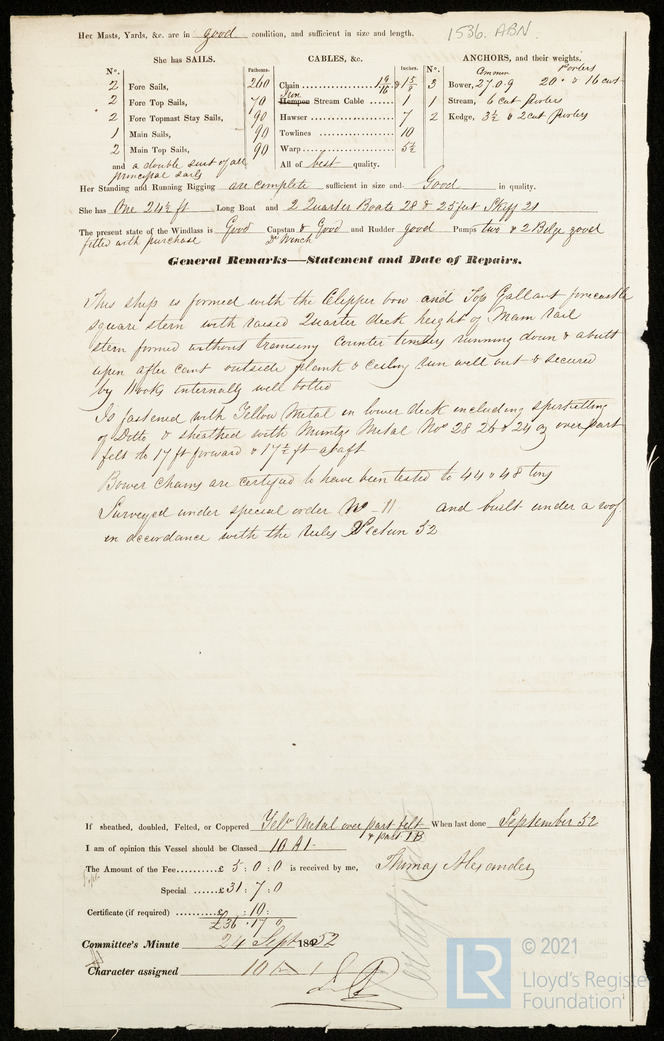 Her Masts, Yards, &c. are in good condition, and sufficient in size and length.
1536. ABN.
She has SAILS.
CABLES, &c.
ANCHORS, and their weights.
No. Fathoms. Inches. No. Common Porters
2 Fore Sails, 260 Chain 1 9/16 & 1 5/8 3 Bower, 27.0.9 20 & 16 cwt
2 Fore Top Sails, 70 Iron Hempen Stream Cable 1 1 Stream, 6 cwt Porters
2 Fore Topmast Stay Sails, 90 Hawser 7 2 Kedge, 3½ & 2 cwt Porters
1 Main Sails, 90 Towlines 10
2 Main Top Sails, 90 Warp 5½
and a double suit of all principal sails
All of best quality.
Her Standing and Running Rigging are complete sufficient in size and Good in quality.
She has One 24½ ft Long Boat and 2 Quarter Boats 28 & 25 feet Skiff 21
The present state of the Windlass is Good Capstan & Good and Rudder good Pumps two & 2 Bilge good
fitted with purchase Do Winch
General Remarks—Statement and Date of Repairs.
This ship is formed with the Clipper bow and Top Gallant forecastle
square stern with raised Quarter deck height of Main rail
stern formed without transoms counter timbers running down & abutt
upon after cant outside plank & ceiling run well out & secured
by Hooks internally well bolted
Is fastened with Yellow Metal in lower deck including spirketting
of Ditto & sheathed with Muntz Metal Nos 28 26 & 24 oz over part
felt to 17 ft forward & 17½ ft abaft
Bower Chains are certified to have been tested to 44 & 48 tons
Surveyed under special order No 11 and built under a roof
in accordance with the rules Section 52
If sheathed, doubled, Felted, or Coppered Yelw Metal over part felt When last done September 52
& part IB
I am of opinion this Vessel should be Classed 10 A1
The Amount of the Fee £ 5 : 0 : 0 is received by me, Thomas Alexander
Special £31 : 7 : 0
Certificate (if required) £ : 10 :
£36 . 17 0
Committee's Minute 24 Sept 1852
Character assigned 10 A 1
© 2021
LR
Lloyd's Register
Foundation